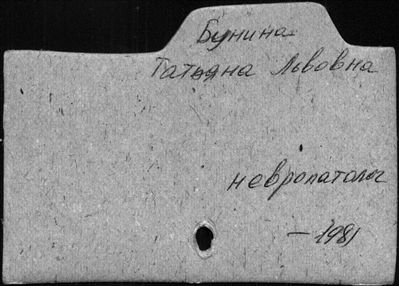 Бунина
Татьяна Львовна
невропатолог
– 1981